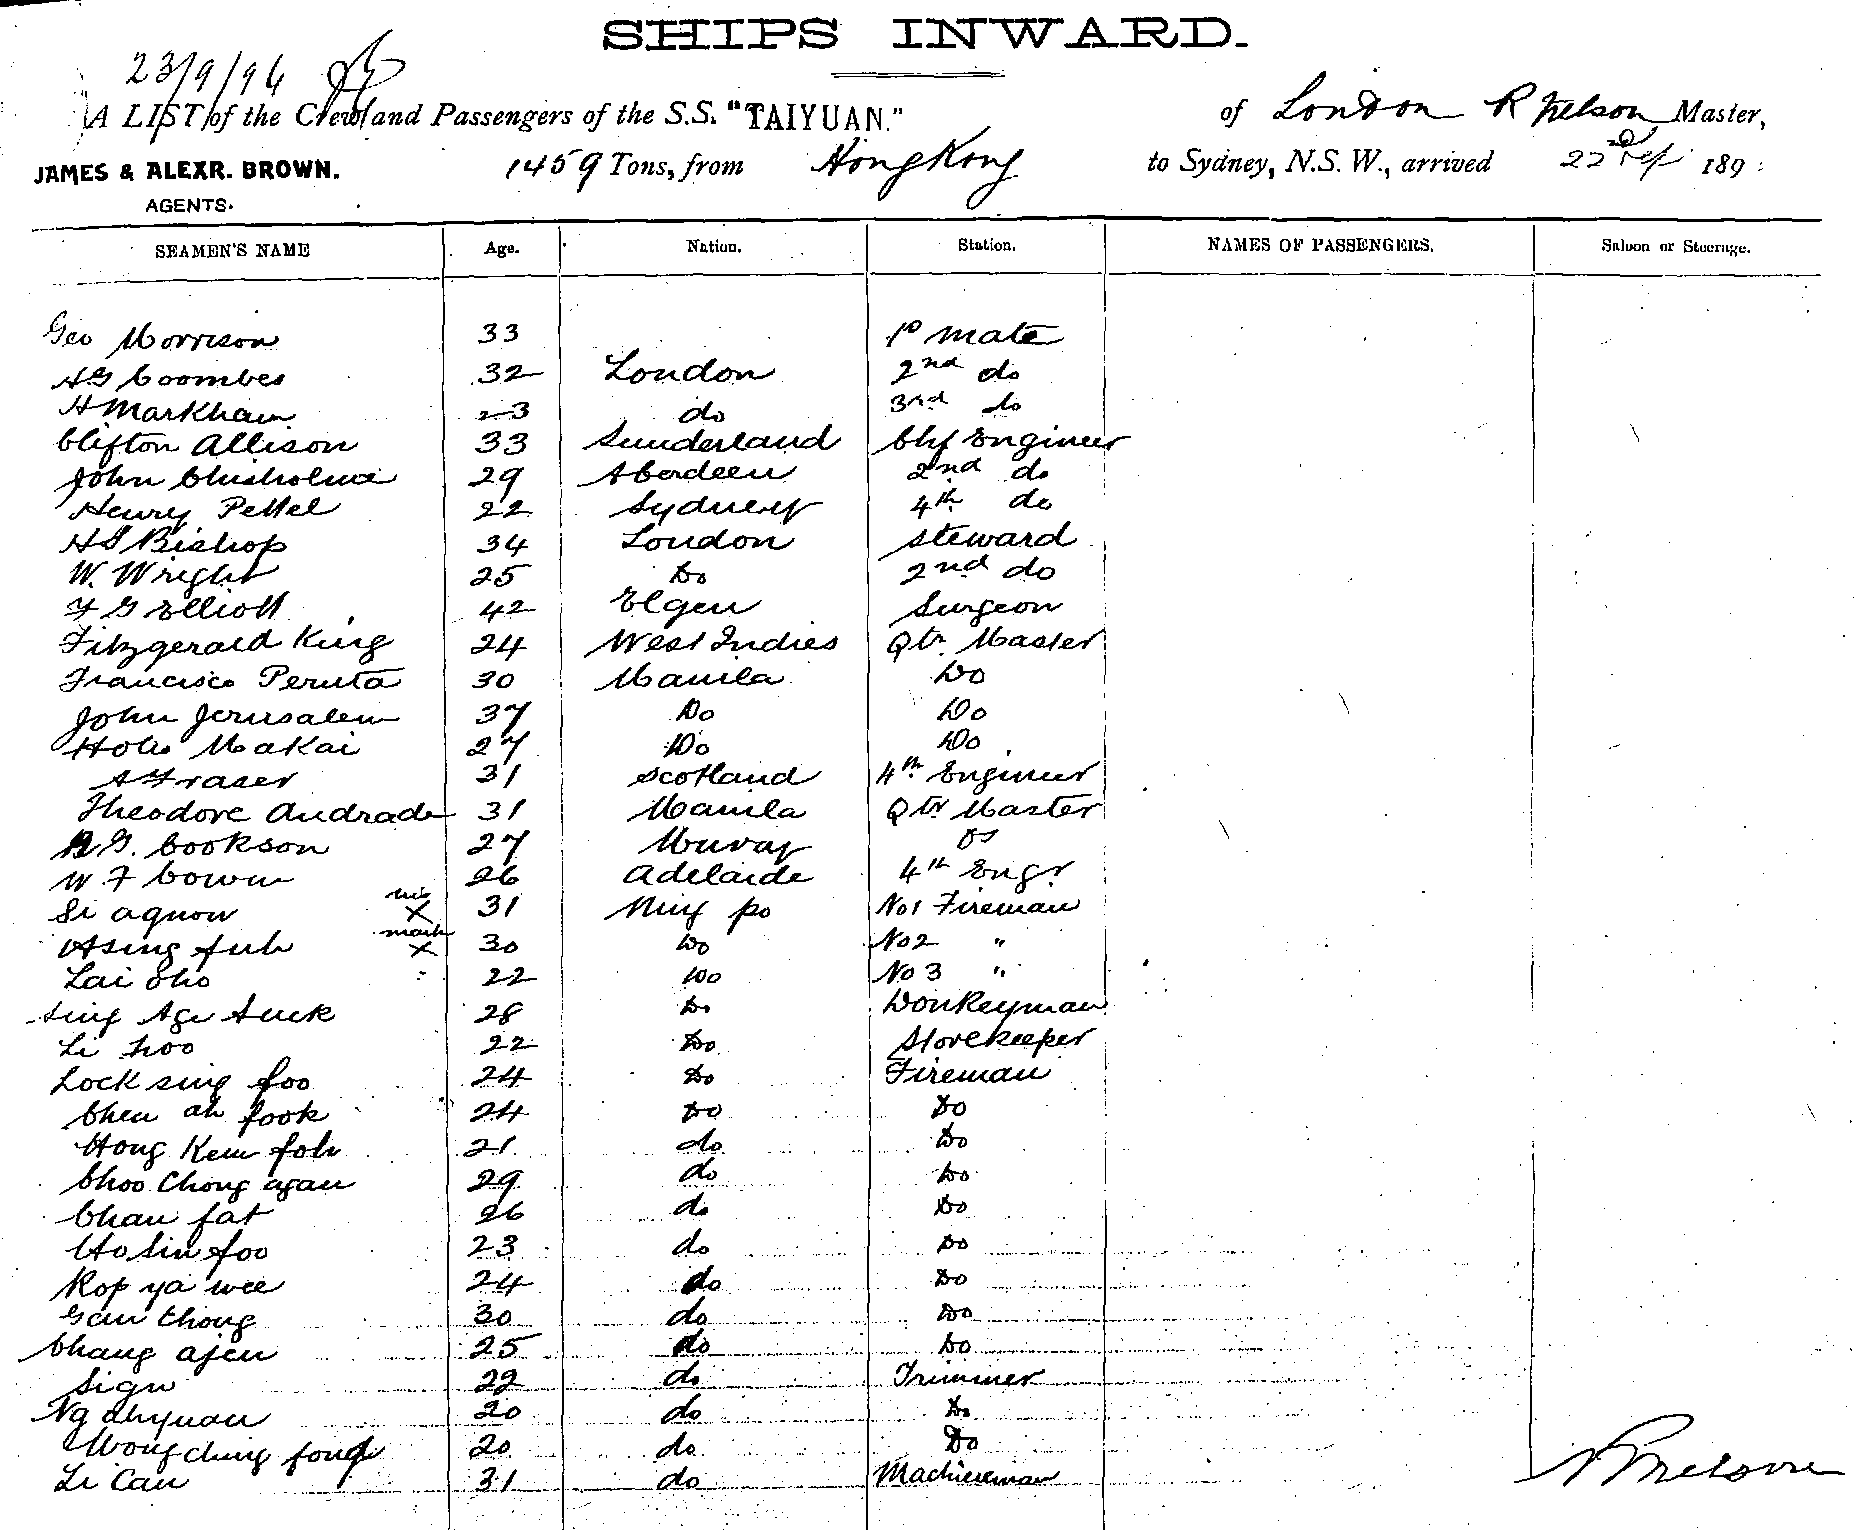 SHIPS INWARD.
23/9/96
A LIST of the Crew and Passengers of the S.S. "TAIYUAN." of London R Nelson Master,
JAMES & ALEXR. BROWN. 1459 Tons, from Hong Kong to Sydney, N.S.W., arrived 22 Sep 189
AGENTS.
SEAMEN'S NAME Age. Nation. Station. NAMES OF PASSENGERS. Saloon or Steerage.
Geo Morrison 33 1o mate
HG Coombes 32 London 2nd do
H Markham 23 do 3rd do
Clifton Allison 33 Sunderland Chf Engineer
John Chisholme 29 Aberdeen 2nd do
Henry Pettel 22 Sydney 4th do
HS Bishop 34 London steward
W. Wright 25 Do 2nd do
F G Elliott 42 Elgen Surgeon
Fitzgerald King 24 West Indies Qtr Master
Francisco Peruta 30 Manila Do
John Jerusalem 37 Do Do
Makai 27 Do Do
A Fraser 31 Scotland 4th Engineer
Theodore Andrade 31 Manila Qtr Master
G. Cookson 27 Do
W F 26 Adelaide 4th Engr
Si aquow his x 31 Ning po No 1 Fireman
Asing fuh mark x 30 Do No 2 "
Lai Sho 22 Do No 3 "
Sing Age Suck 28 Do Donkeyman
Li hoo 22 Do Storekeeper
Lock sing foo 24 Do Fireman
Chen ah fook 24 Do Do
Hong Kem foh 21 do Do
Choo Chong agan 29 do Do
Chan fat 26 do Do
Ho Sin foo 23 do Do
Kop ya wee 24 do Do
Gan Chong 30 do Do
Chang ajen 25 do Do
Sigu 22 do Trimmer
Ng ahyuan 20 do Do
Wong Ching fong 20 do Do
Li Can 31 do Machineman
R Nelson